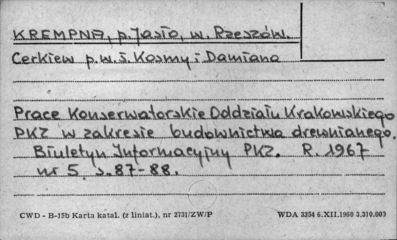 KREMPNA, p. Jasło, w. Rzeszów.
Cerkiew p.w. ś. Kosmy i Damiana
Prace Konserwatorskie Oddziału Krakowskiego
PKZ w zakresie budownictwa drewnianego.
Biuletyn Informacyjny PKZ. R. 1967
nr 5, s. 87-88.
CWD - B-15b Karta katal. (z liniat.), nr 2731/ZW/P WDA 3354 6.XII.1960 3.310.000